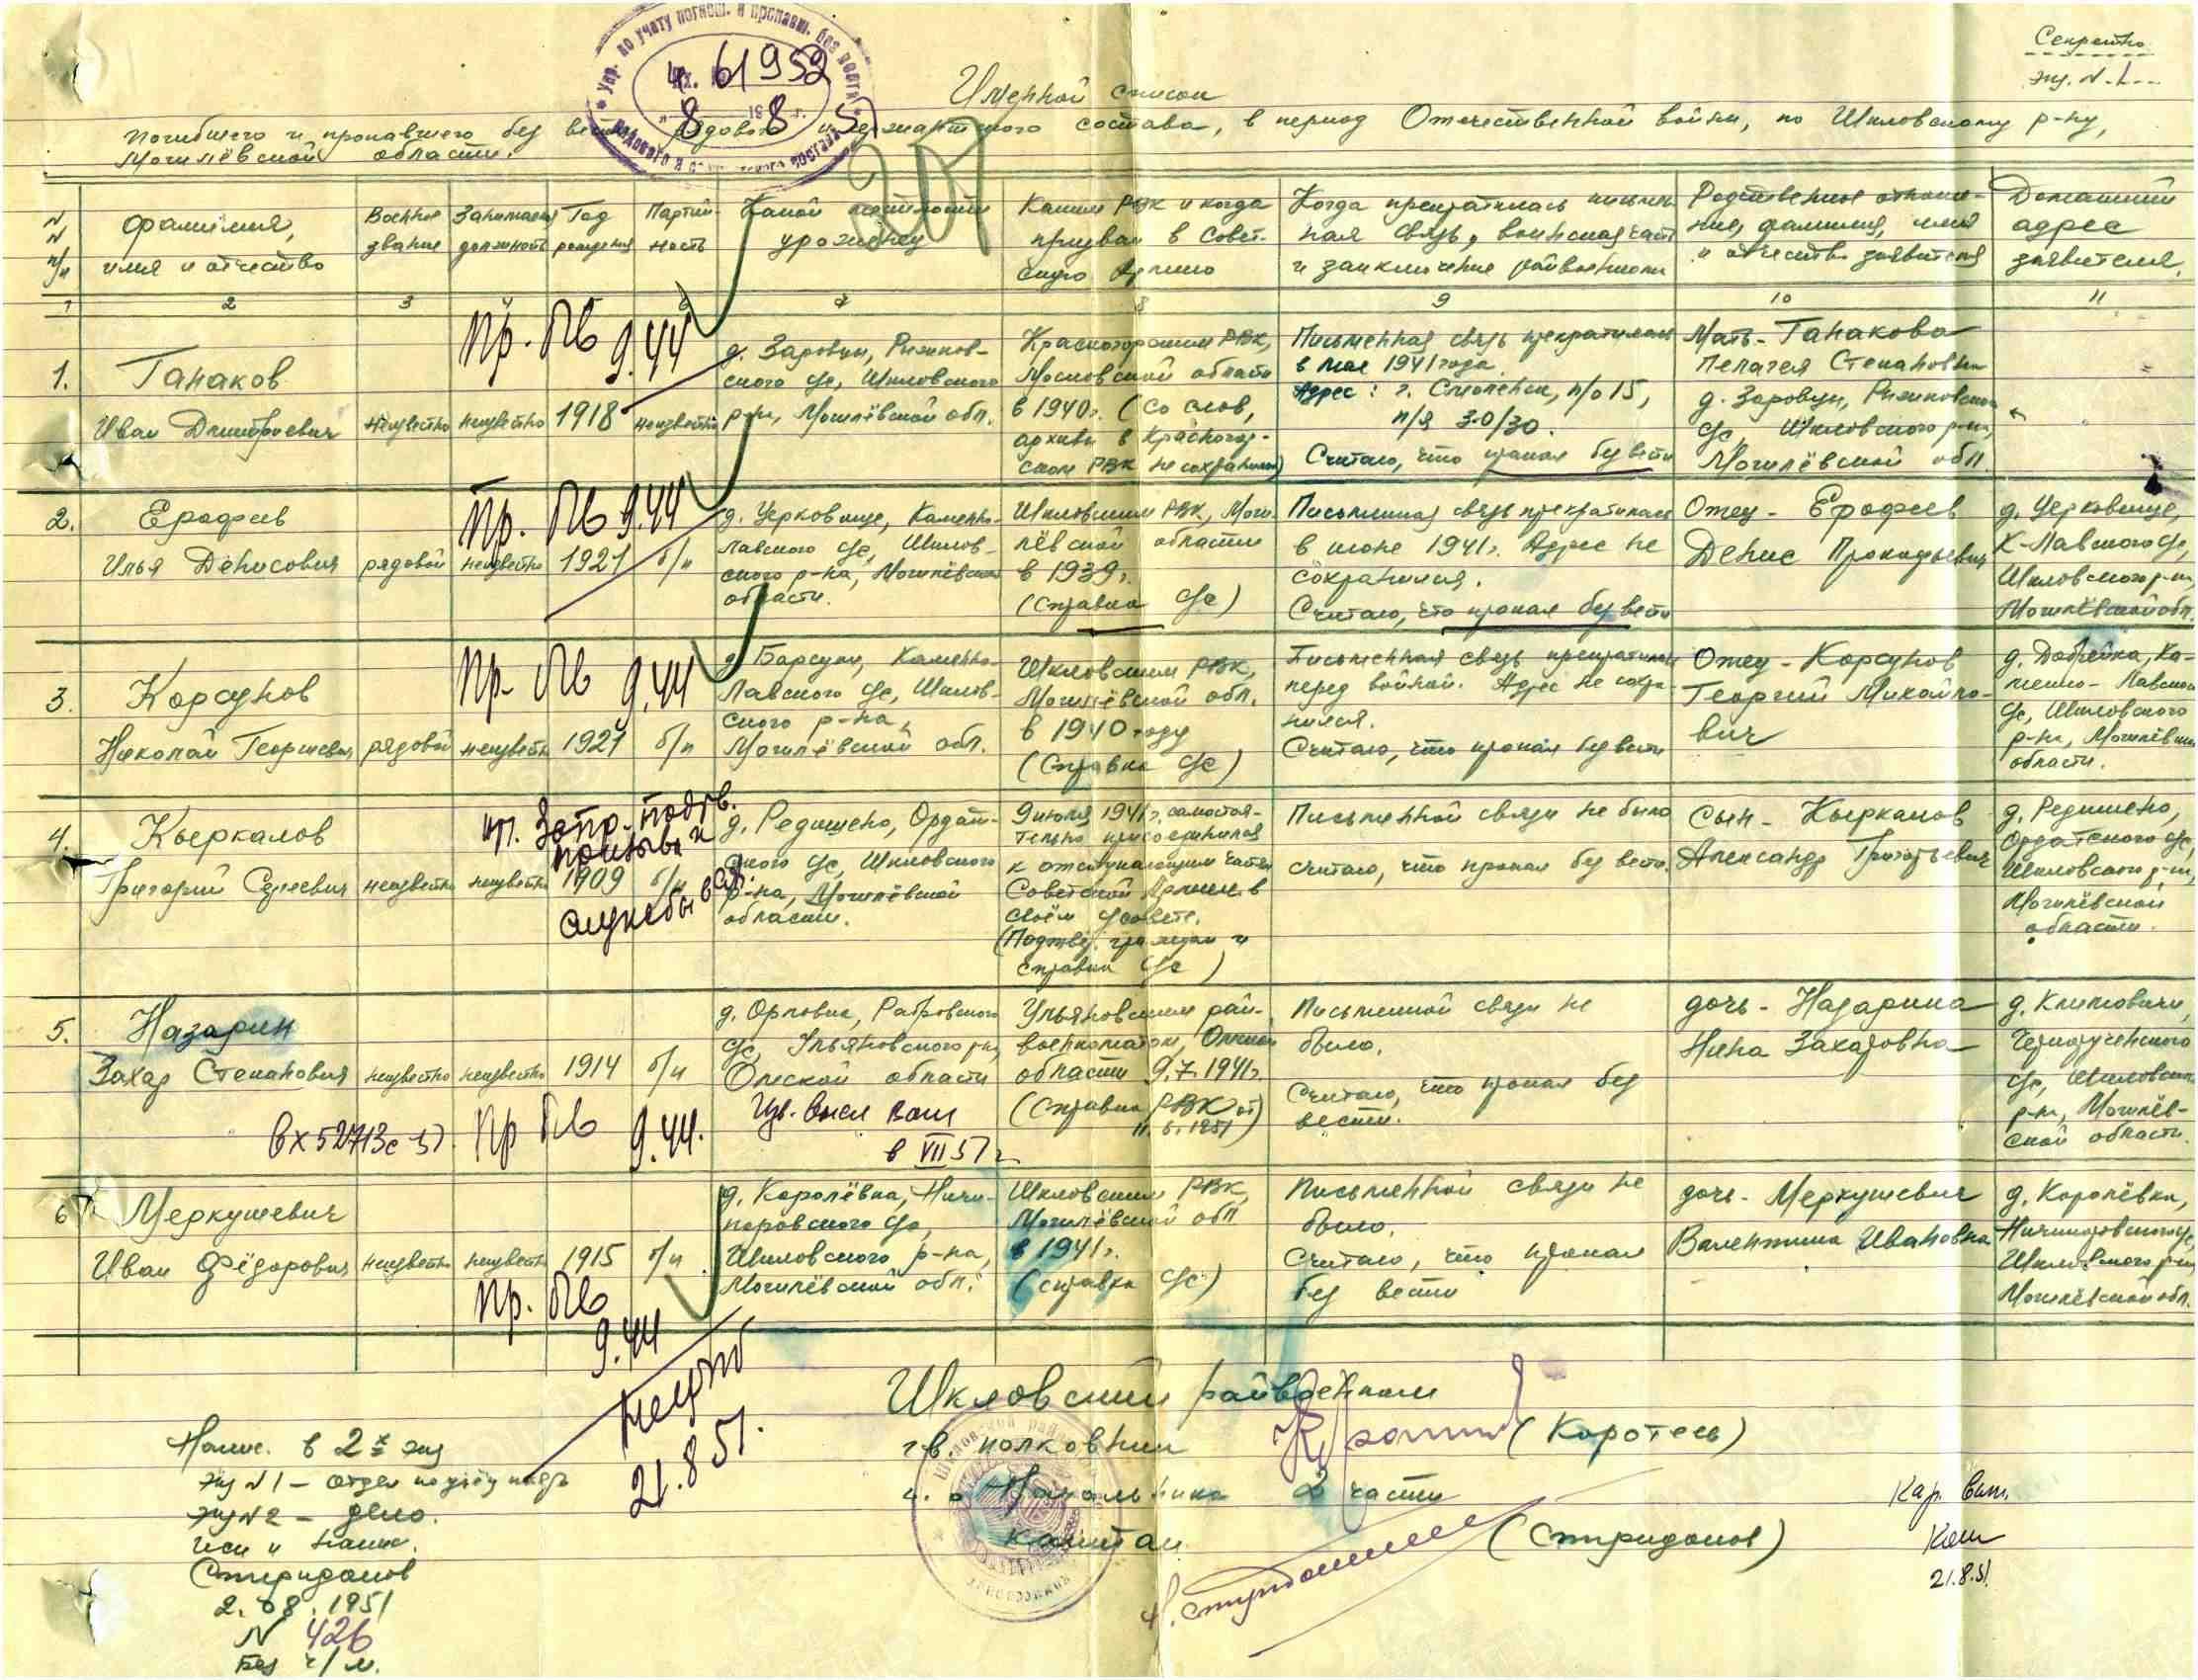 Секретно
Экз. N 1
Укр. по учету погибш. и пропавш. без вести
рядового и сержантского состава
Вх. 61952
8 8 51
Именной список
погибшего и пропавшего без вести рядового и сержантского состава, в период Отечественной войны, по Шкловскому р-ну,
Могилёвской области.
N N п/п
Фамилия, имя и отчество
Военное звание
Занимаемая должность
Год рождения
Партийность
Какой местности уроженец
Каким РВК и когда призван в Советскую Армию
Когда прекратилась письменная связь, воинская часть и заключение райвоенкома
Родственное отношение, фамилия, имя и отчество заявителя
Домашний адрес заявителя.
1 2 3 4 6 7 8 9 10 11
1.
Танаков
Иван Дмитриевич
неизвестно
неизвестно
1918
неизвестно
пр. б/в 9.44
д. Заровцы, Рыжков-
ского с/с, Шкловского
р-на, Могилёвской обл.
Красногорским РВК,
Московской области
в 1940г. (со слов,
архивы в Красногор-
ском РВК не сохранились)
Письменная связь прекратилась
в мае 1941 года.
Адрес: г. Смоленск, п/о 15,
п/я 30/30.
Считаю, что пропал без вести
Мать - Танакова
Пелагея Степановна
д. Заровцы, Рыжковского
с/с, Шкловского р-на,
Могилёвской обл.
2.
Ерофеев
Илья Денисович
рядовой
неизвестно
1921
б/п
пр. б/в 9.44
д. Церковище, Каменно-
Лавского с/с, Шклов-
ского р-на, Могилёвской
области.
Шкловским РВК, Моги-
лёвской области
в 1939г.
(Справка с/с)
Письменная связь прекратилась
в июне 1941г. Адрес не
сохранился.
Считаю, что пропал без вести
Отец - Ерофеев
Денис Прокофьевич
д. Церковище,
К-Лавского с/с,
Шкловского р-на,
Могилёвской обл.
3.
Корсунов
Николай Георгиевич
рядовой
неизвестно
1921
б/п
пр. б/в 9.44
д. Барсуки, Каменно-
Лавского с/с, Шклов-
ского р-на,
Могилёвской обл.
Шкловским РВК,
Могилёвской обл.
в 1940 году
(Справка с/с)
Письменная связь прекратилась
перед войной. Адрес не сохра-
нился.
Считаю, что пропал без вести
Отец - Корсунов
Георгий Михайло-
вич
д. Добрейка, Ка-
менно-Лавского
с/с, Шкловского
р-на, Могилёвской
области.
4.
Кыркалов
Григорий Сергеевич
неизвестно
неизвестно
1909
б/п
Запр. подтв.
призыва и
службы в СА.
д. Редишено, Ордат-
ского с/с, Шкловского
р-на, Могилёвской
области.
9 июля 1941г. самостоя-
тельно присоединился
к отступающим частям
Советской Армии в
своём с/совете.
(Подтвер. граждан и
справки с/с)
Письменной связи не было
считаю, что пропал без вести.
Сын - Кыркалов
Александр Григорьевич
д. Редишено,
Ордатского с/с,
Шкловского р-на,
Могилёвской
области.
5.
Назарин
Захар Степанович
неизвестно
неизвестно
1914
б/п
вх 52713с-51.
пр б/в 9.44.
д. Орловка,
с/с, Ульяновского р-на,
Омской области
Изв. высл
в VII 51г
Ульяновским рай-
военкоматом, Омской
области 9.7.1941г.
(Справка РВК от
11.6.1951)
Письменной связи не
было.
Считаю, что пропал без
вести.
дочь - Назарина
Нина Захаровна
д. Климовичи,
Черноручского
с/с, Шкловского
р-на, Могилёв-
ской области.
6.
Меркушевич
Иван Фёдорович
неизвестно
неизвестно
1915
б/п
пр. б/в
9.44
д. Королёвка, Ничи-
поровского с/с,
Шкловского р-на,
Могилёвской обл.
Шкловским РВК,
Могилёвской обл
в 1941г.
(справка с/с)
Письменной связи не
было.
Считаю, что пропал
без вести
дочь - Меркушевич
Валентина Ивановна
д. Королёвка,
Ничипоровского с/с,
Шкловского р-на,
Могилёвской обл.
21.8.51.
Шкловский райвоенком
гв. полковник
(Коротеев)
и. о. Начальника 2 части
капитан
(Спиридонов)
Напис. в 2х экз
экз N1 - отдел
экз N2 - дело.
исп и напис.
Спиридонов
2.08.1951
N 426
Без ч/м.
21.8.51.